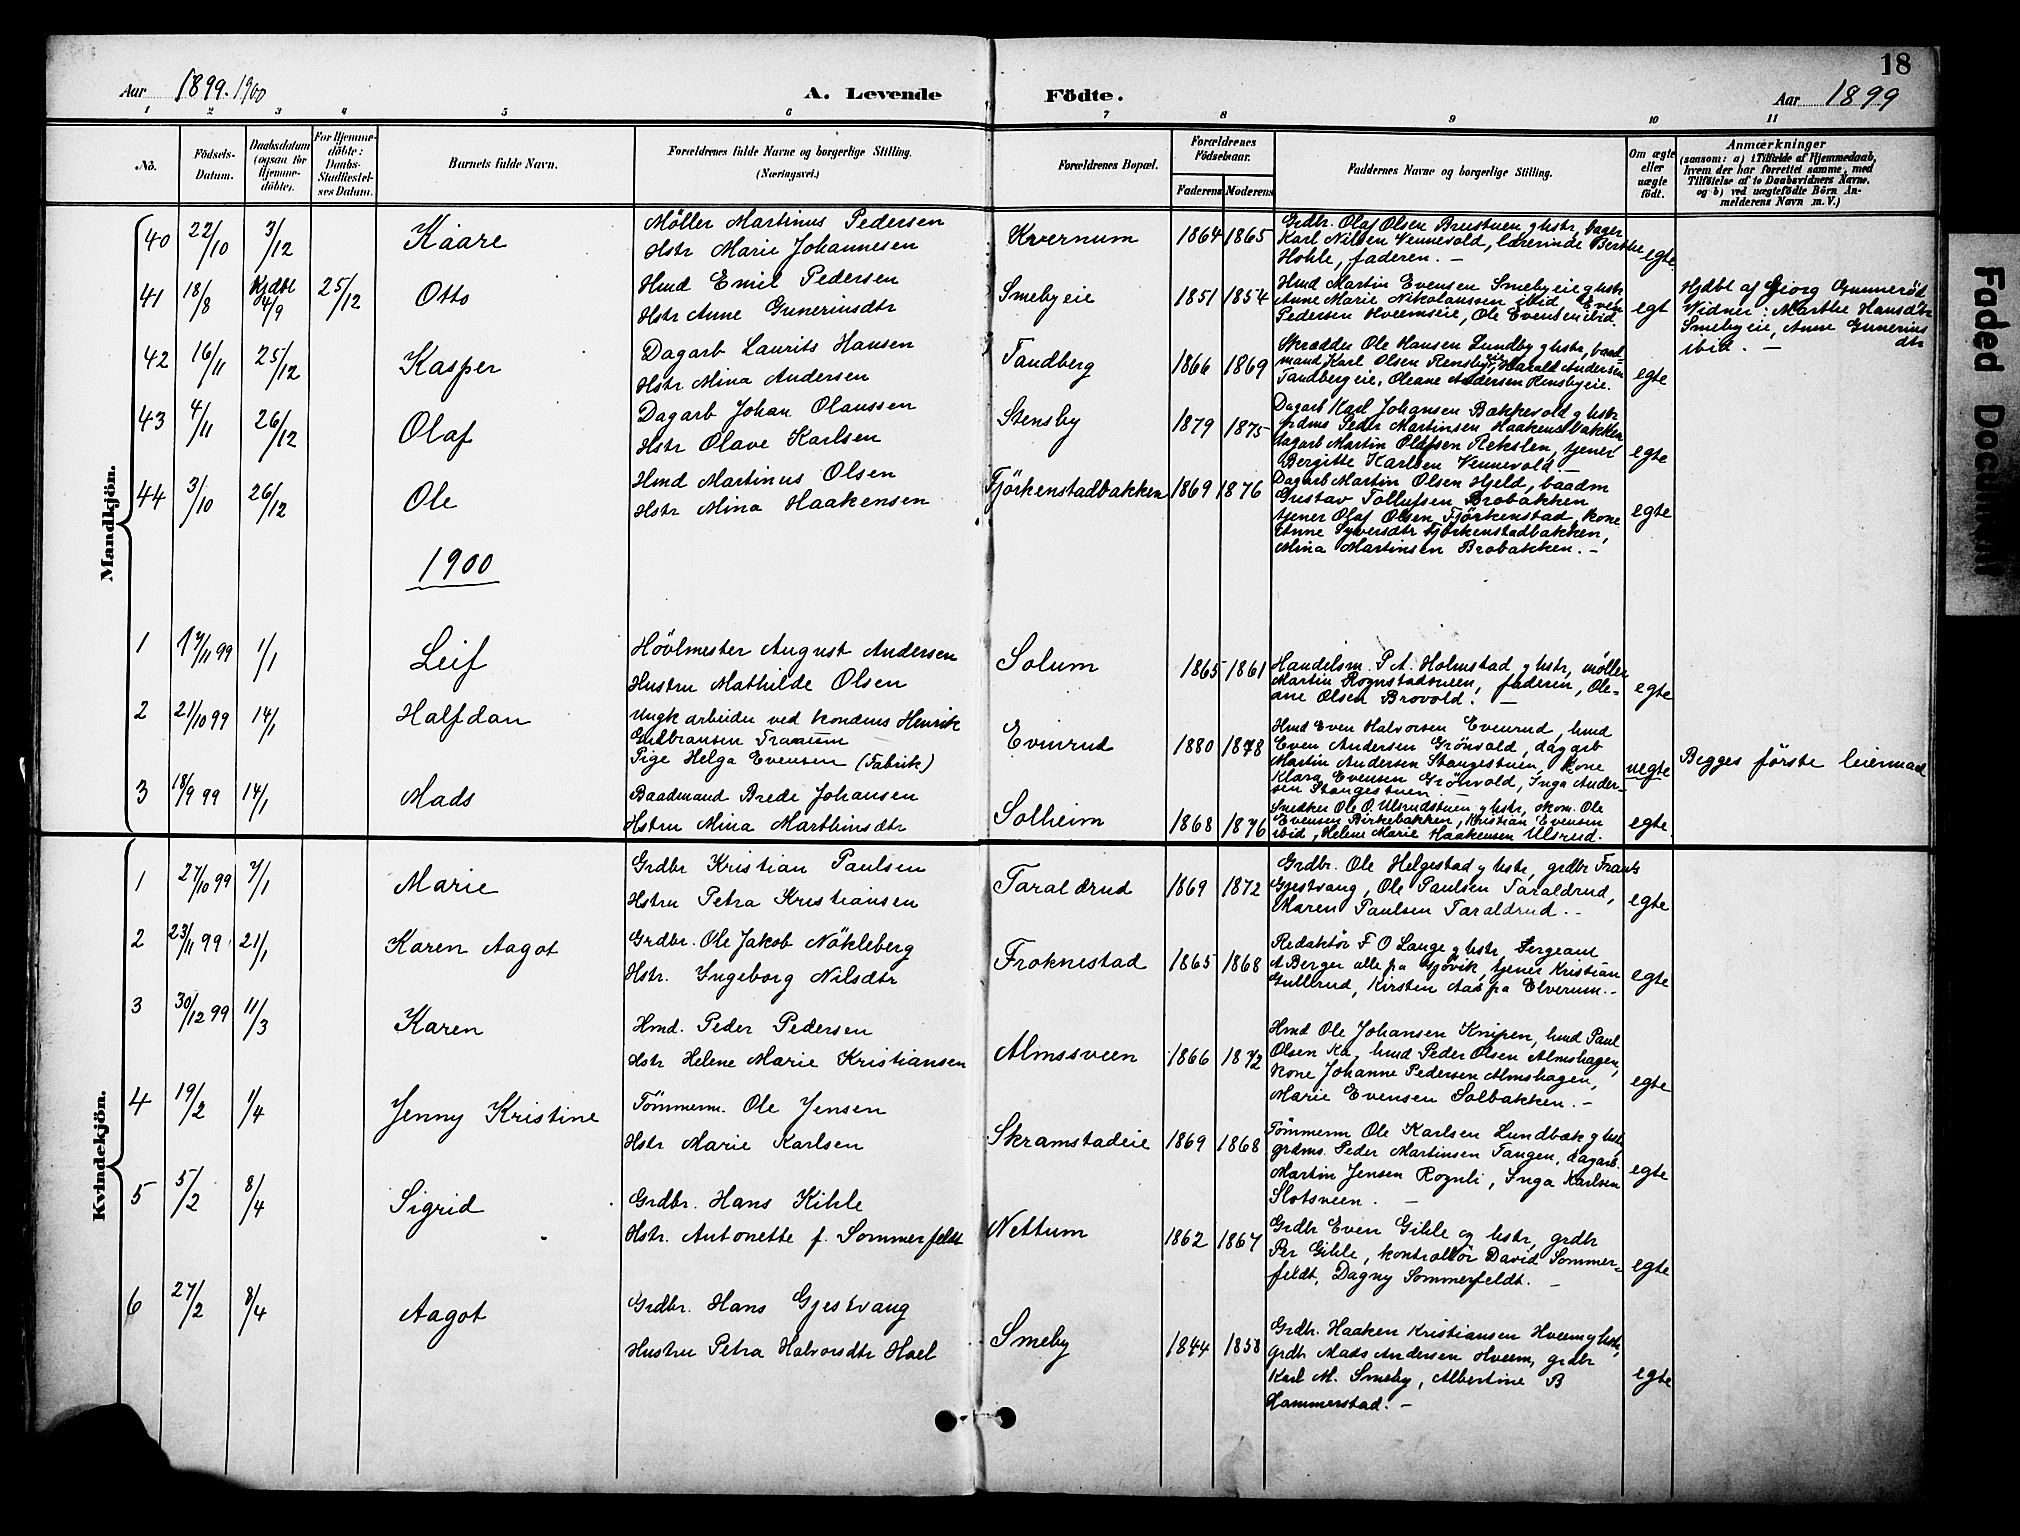 18
Aar 1899. 1900
A. Levende Födte.
Aar 1899
1 2 3 4 5 6 7 8 9 10 11
No.
Födsels-Datum.
Daabsdatum (ogsaa for Hjemmedöbte).
For Hjemmedöbte: Daabs-Stadfæstelses Datum.
Barnets fulde Navn.
Forældrenes fulde Navne og borgerlige Stilling.
(Næringsvei.)
Forældrenes Bopæl.
Forældrenes Födselsaar.
Faderens Moderens
Faddernes Navne og borgerlige Stilling.
Om ægte eller uægte födt.
Anmærkninger
(saasom: a) i Tilfælde af Hjemmedaab,
hvem der har forrettet samme, med
Tilföielse af to Daabsvidners Navne,
og b) ved uægtefödte Börn An-
melderens Navn m. V.)
Mandkjön.
40 22/10 3/12 Kaare
Møller Martinus Pedersen
Hstr Marie Johannesen
Kvernum 1864 1865
Grdbr. Olaf Olsen Brustuen g hstr, bager
Karl Nilsen Vennevold, lærerinde Berthe
Hohle, faderen. –
egte.
41 18/8 Hjdbt 4/9 25/12 Otto
Hmd Emil Pedersen
Hstr Anne Gunerinsdtr
Smebyeie 1851 1854
Hmd Martin Evensen Smebyeie g hstr
Anne Marie Nikolaussen ibid, Even
Pedersen Hveemseie, Ole Evensen ibid.
egt
Hjdbt af Georg Gunnerød
Vidner: Marthe Hansdtr
Smebyeie, Anne Gunerins
dtr
ibid. –
42 16/11 25/12 Kasper
Dagarb Laurits Hansen
Hstr Mina Andersen
Tandberg 1866 1869
Skrædder Ole Hansen Lundby g hstr, baad-
mand Karl Olsen Rensbyeie, Harald Andersen
Tandbergeie, Oleane Andersen Rensbyeie.
egte
43 4/11 26/12 Olaf
Dagarb Johan Olaussen
Hstr Olave Karlsen
Stensby 1879 1875
Dagarb Karl Johansen Bakkevold g hstr,
grdms Peder Martinsen Haakensbakken,
dagarb Martin Olafsen Rekslen, tjener
Bergitte Karlsen Vennevold. –
egte
44 3/10 26/12 Ole
Hmd Martinus Olsen
Hstr Mina Haakensen
Fjörkenstadbakken 1869 1876
Dagarb Martin Olsen Hjeld, baadm
Gustav Tollefsen Brobakken
tjener Olaf Olsen Fjörkenstad, kone
Anne Syversdtr Fjörkenstadbakken,
Mina Martinsen Brobakken. –
egte
1900
1 17/11 99 1/1 Leif
Hövlmester August Andersen
Hustru Mathilde Olsen
Solum 1865 1861
Handelsm. P. A. Holmstad g hstr, møller
Martin Rognstadsveen, faderen, Ole-
ane Olsen Brovold. –
egte
2 21/10 99 14/1 Halfdan
Ungk arbeider ved kondens Henrik
Gulbransen Traaum
Pige Helga Evensen (Fabrik)
Evenrud 1880 1878
Hmd Even Halvorsen Evenrud, hmd
Even Andersen Grönvold, dagarb
Martin Andersen Stangestuen, kone
Klara Evensen Grönvold, Inga Ander-
sen Stangestuen
uegte
Begges förste leiermaal
3 18/9 99 14/1 Mads
Baadmand Brede Johansen
Hstru Mina Marthinsdtr
Solheim 1868 1876
Snedker Ole O. Ulsrudstuen g hstr, skom. Ole
Evensen Birkebakken, Kristian Evensen
ibid, Helene Marie Haakensen Ulsrud.
egte.
Kvindekjön.
1 27/10 99 7/1 Marie
Grdbr Kristian Paulsen
Hstru Petra Kristiansen
Taraldrud 1869 1872
Grdbr. Ole Helgestad g hstr, grdbr Frants
Gjestvang, Ole Paulsen Taraldrud,
Maren Paulsen Taraldrud. –
egte
2 23/11 99 21/1 Karen Aagot
Grdbr. Ole Jakob Nökleberg
Hstr. Ingeborg Nilsdtr
Froknestad 1865 1868
Redaktör F O Lange g hstr, Sergeant
A Berger alle pa Gjövik, tjener Kristian
Gullrud, Kirsten Aas pa Elverum. –
egte
3 30/12 99 11/3 Karen
Hmd. Peder Pedersen
Hstr Helene Marie Kristiansen
Almssveen 1866 1872
Hmd Ole Johansen Knipen, hmd Paul
Olsen Ka, hmd Peder Olsen Almshagen,
kone Johanne Pedersen Almshagen,
Marie Evensen Solbakken. –
egte
4 19/2 1/4 Jenny Kristine
Tömmerm. Ole Jensen
Hstr Marie Karlsen
Skramstadeie 1869 1868
Tömmerm Ole Karlsen Lundbæk g hstr,
grdms. Peder Martinsen Tangen, dagarb.
Martin Jensen Rognli, Inga Karlsen
Slotsveen. –
egte
5 5/2 8/4 Sigrid
Grdbr. Hans Kihle
Hstr. Antonette f. Sommerfeldt
Nettum 1862 1867
Grdbr Even Gihle og hstr, grdbr
Per Gihle, kontrollör David Sommer-
feldt, Dagny Sommerfeldt. –
egte
6 27/2 8/4 Aagot
Grdbr. Hans Gjestvang
Hustru Petra Halvorsdtr Hoel
Smeby 1844 1858
Grdbr. Haaken Kristiansen Hveem g hstr,
grdbr Mads Andersen Hveem, grdbr
Karl M. Smeby, Albertine B
Hammerstad. –
egte
Faded Document